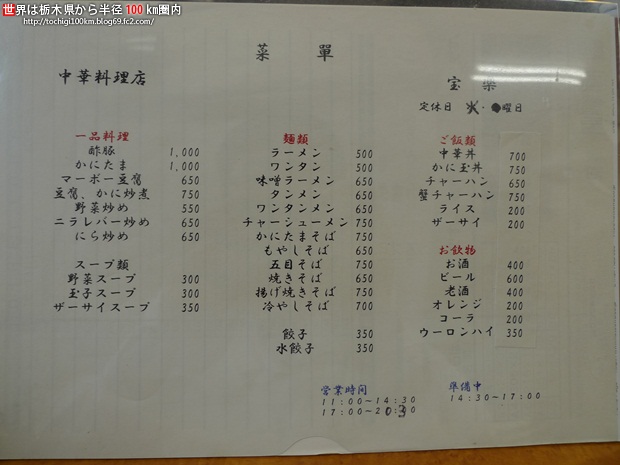 世界は栃木県から半径 100 km圏内
http://tochigi100km.blog69.fc2.com/
菜 單
中華料理店
宝 楽
定休日 火・●曜日
一品料理
酢豚 1,000
かにたま 1,000
マーボー豆腐 650
豆腐、かに炒煮 750
野菜炒め 550
ニラレバー炒め 650
にら炒め 650
スープ類
野菜スープ 300
玉子スープ 300
ザーサイスープ 350
麺類
ラーメン 500
ワンタン 500
味噌ラーメン 650
タンメン 650
ワンタンメン 650
チャーシューメン 750
かにたまそば 750
もやしそば 650
五目そば 750
焼きそば 650
揚げ焼きそば 750
冷やしそば 700
餃子 350
水餃子 350
ご飯類
中華丼 700
かに玉丼 750
チャーハン 650
蟹チャーハン 750
ライス 200
ザーサイ 200
お飲物
お酒 400
ビール 600
老酒 400
オレンジ 200
コーラ 200
ウーロンハイ 350
営業時間
11:00～14:30
17:00～20:30
準備中
14:30～17:00